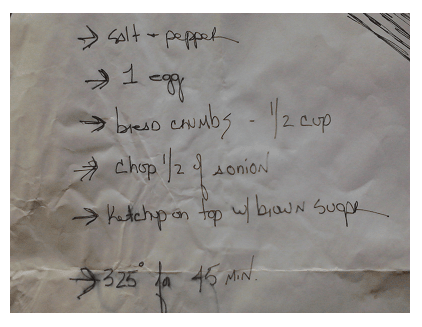 → salt + pepper
→ 1 egg
→ bread crumbs - 1/2 cup
→ chop 1/2 of sonion
→ Ketchup on top w/ brown sugar
→ 325° for 45 MIN.